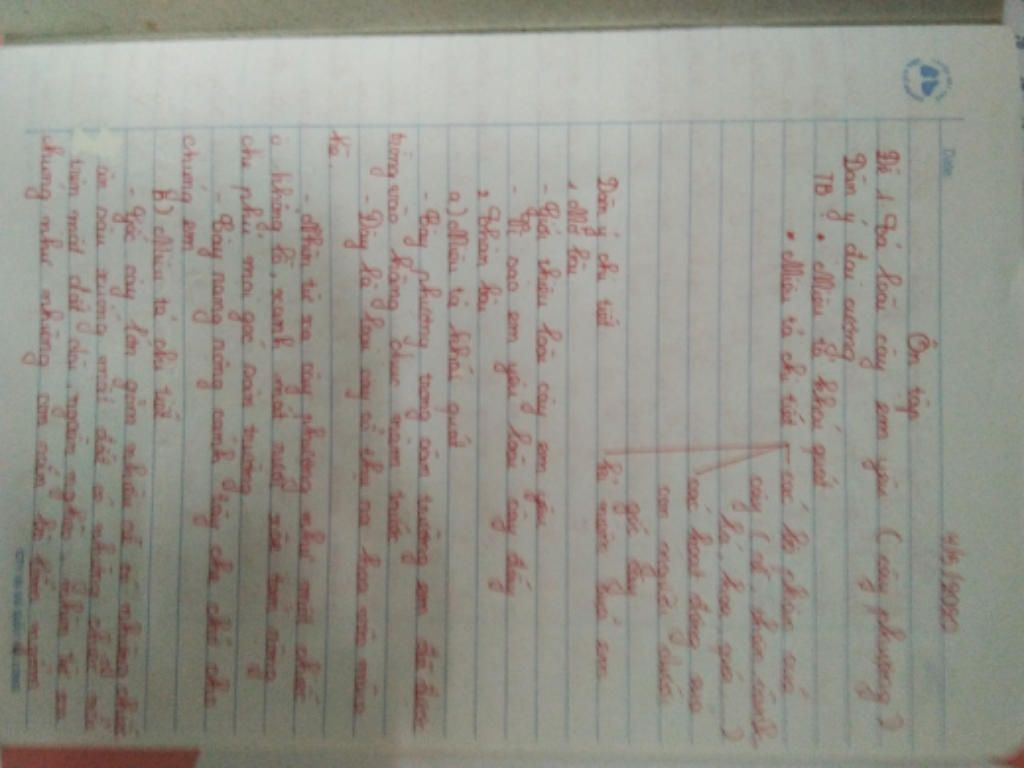 4/5/2020
Ôn tập
Đề 1 Tả loài cây em yêu (cây phượng)
Dàn ý đại cương
TB: • Miêu tả khái quát
• Miêu tả chi tiết – các bộ phận của
cây (rễ, thân cành,
lá, hoa, quả...)
các hoạt động của
con người dưới
gốc cây
kỉ niệm của em
Dàn ý chi tiết
1, Mở bài
- Giới thiệu loài cây em yêu
- Vì sao em yêu loài cây đấy
2, Thân bài
a) Miêu tả khái quát
- Cây phượng trong sân trường em đã được
trồng vào khoảng chục năm trước
- Đây là loài cây cổ thụ ra hoa vào mùa
hè.
- Nhìn từ xa cây phượng như một chiếc
ô khổng lồ, xanh mát rượi, xòe tán rộng
che phủ mọi góc sân trường.
- Cây nang rộng cánh tay che chở cho
chúng em
b) Miêu tả chi tiết
- Gốc cây lớn gồm nhiều rễ có những chiếc
ăn sâu xuống mặt đất có những chiếc nổi
trên mặt đất dài, ngoằn ngoèo nhìn từ xa
chúng như những con rắn